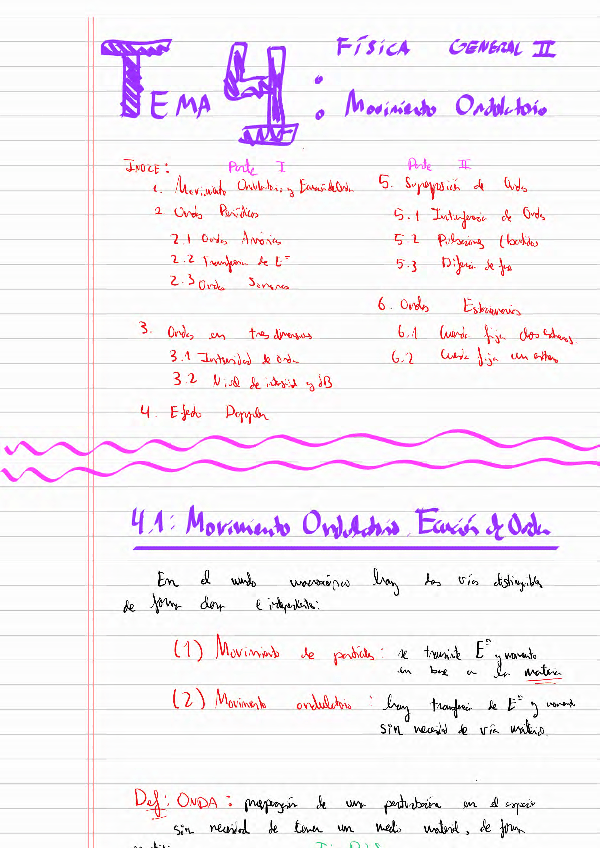 FÍSICA GENERAL II
TEMA 4: Movimiento Ondulatorio
ÍNDICE:
Parte I
1. Movimiento Ondulatorio y Ecuación de Onda
2. Ondas Periódicas
2.1 Ondas Armónicas
2.2 Transferencia de Eⁿ
2.3 Ondas Sonoras
3. Ondas en tres dimensiones
3.1 Intensidad de Onda
3.2 Nivel de intensidad y dB
4. Efecto Doppler
Parte II
5. Superposición de Ondas
5.1 Interferencia de Ondas
5.2 Pulsaciones (batidos
5.3 Diferencia de fase
6. Ondas Estacionarias
6.1 Cuerda fija dos extremos
6.2 Cuerda fija un extremo
4.1: Movimiento Ondulatorio. Ecuación de Onda
En el mundo macroscópico hay dos vías distinguibles
de forma clara e independientes:
(1) Movimiento de partículas: se transmite Eⁿ y momento
en base a la materia
(2) Movimiento ondulatorio: hay transferencia de Eⁿ y momento
sin necesidad de vía material.
Def: ONDA: propagación de una perturbación en el espacio
sin necesidad de tener un medio material, de forma